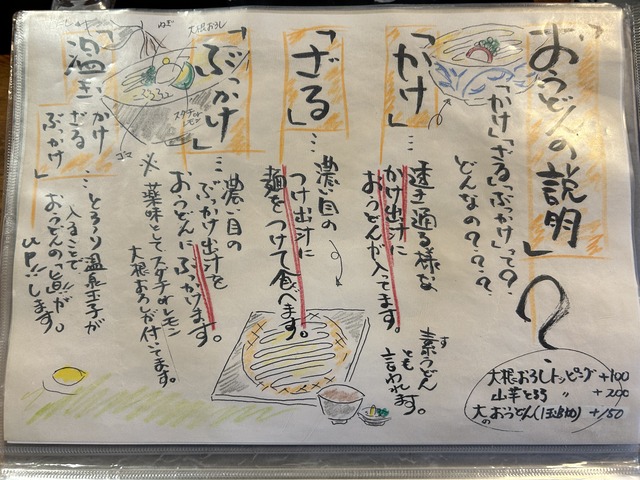 「おうどんの説明」
「かけ」「ざる」「ぶっかけ」って?
どんなの?・?・?
?
「かけ」…
透き通る様な
かけ出汁に
おうどんが入ってます。
素うどん
す
とも
言われます。
「ざる」…
濃い目の
つけ出汁に
麺をつけて食べます。
「ぶっかけ」…
濃い目の
ぶっかけ出汁を
おうどんにぶっかけます。
※薬味としてスダチorレモン
大根おろしが付いてます。
「温玉 かけ
ざる
ぶっかけ」…
とろ〜り温泉玉子が
入ることで
おうどんの旨味が。
UP!!します。
ねぎ
大根おろし
スダチor
レモン
ゴマ
大根おろしトッピング +100
山芋とろろ 〃 +200
大のおうどん(1.5玉) +150